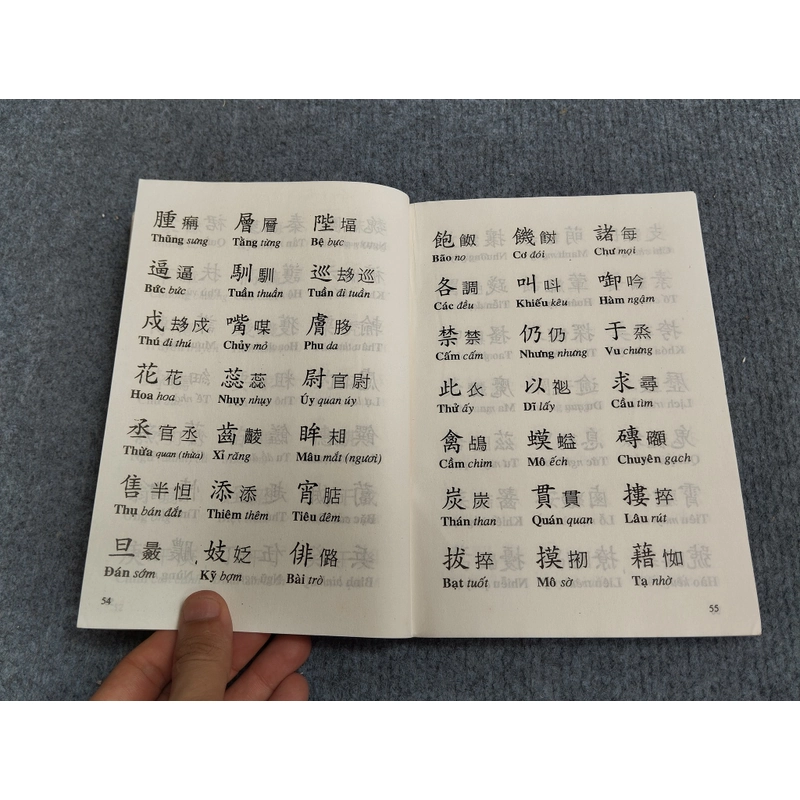 腫 㿺 層 層 陛 堛
Thũng sưng Tằng từng Bệ bực
逼 逼 馴 馴 巡 𠫅 巡
Bức bức Tuần thuần Tuần đi tuần
戍 戍 嘴 㖼 膚
Thú đi thú Chủy mỏ Phu da
花 花 蕊 蕊 尉 官 尉
Hoa hoa Nhụy nhụy Úy quan úy
丞 官 丞 齒 眸 相
Thừa quan (thừa) Xỉ răng Mâu mắt (ngươi)
售 半 怛 添 添 宵
Thụ bán đắt Thiêm thêm Tiêu đêm
旦 妓 俳
Đán sớm Kỹ bợm Bài trò
54
飽 饑 諸 每
Bão no Cơ đói Chư mọi
各 調 叫 吘 啣 吟
Các đều Khiếu kêu Hàm ngậm
禁 禁 仍 仍 于 烝
Cấm cấm Nhưng nhưng Vu chưng
此 衣 以 求 尋
Thử ấy Dĩ lấy Cầu tìm
禽 蟆 磚
Cầm chim Mô ếch Chuyên gạch
炭 炭 貫 貫 摟 捽
Thán than Quán quan Lâu rút
拔 捽 摸 藉
Bạt tuốt Mô sờ Tạ nhờ
55